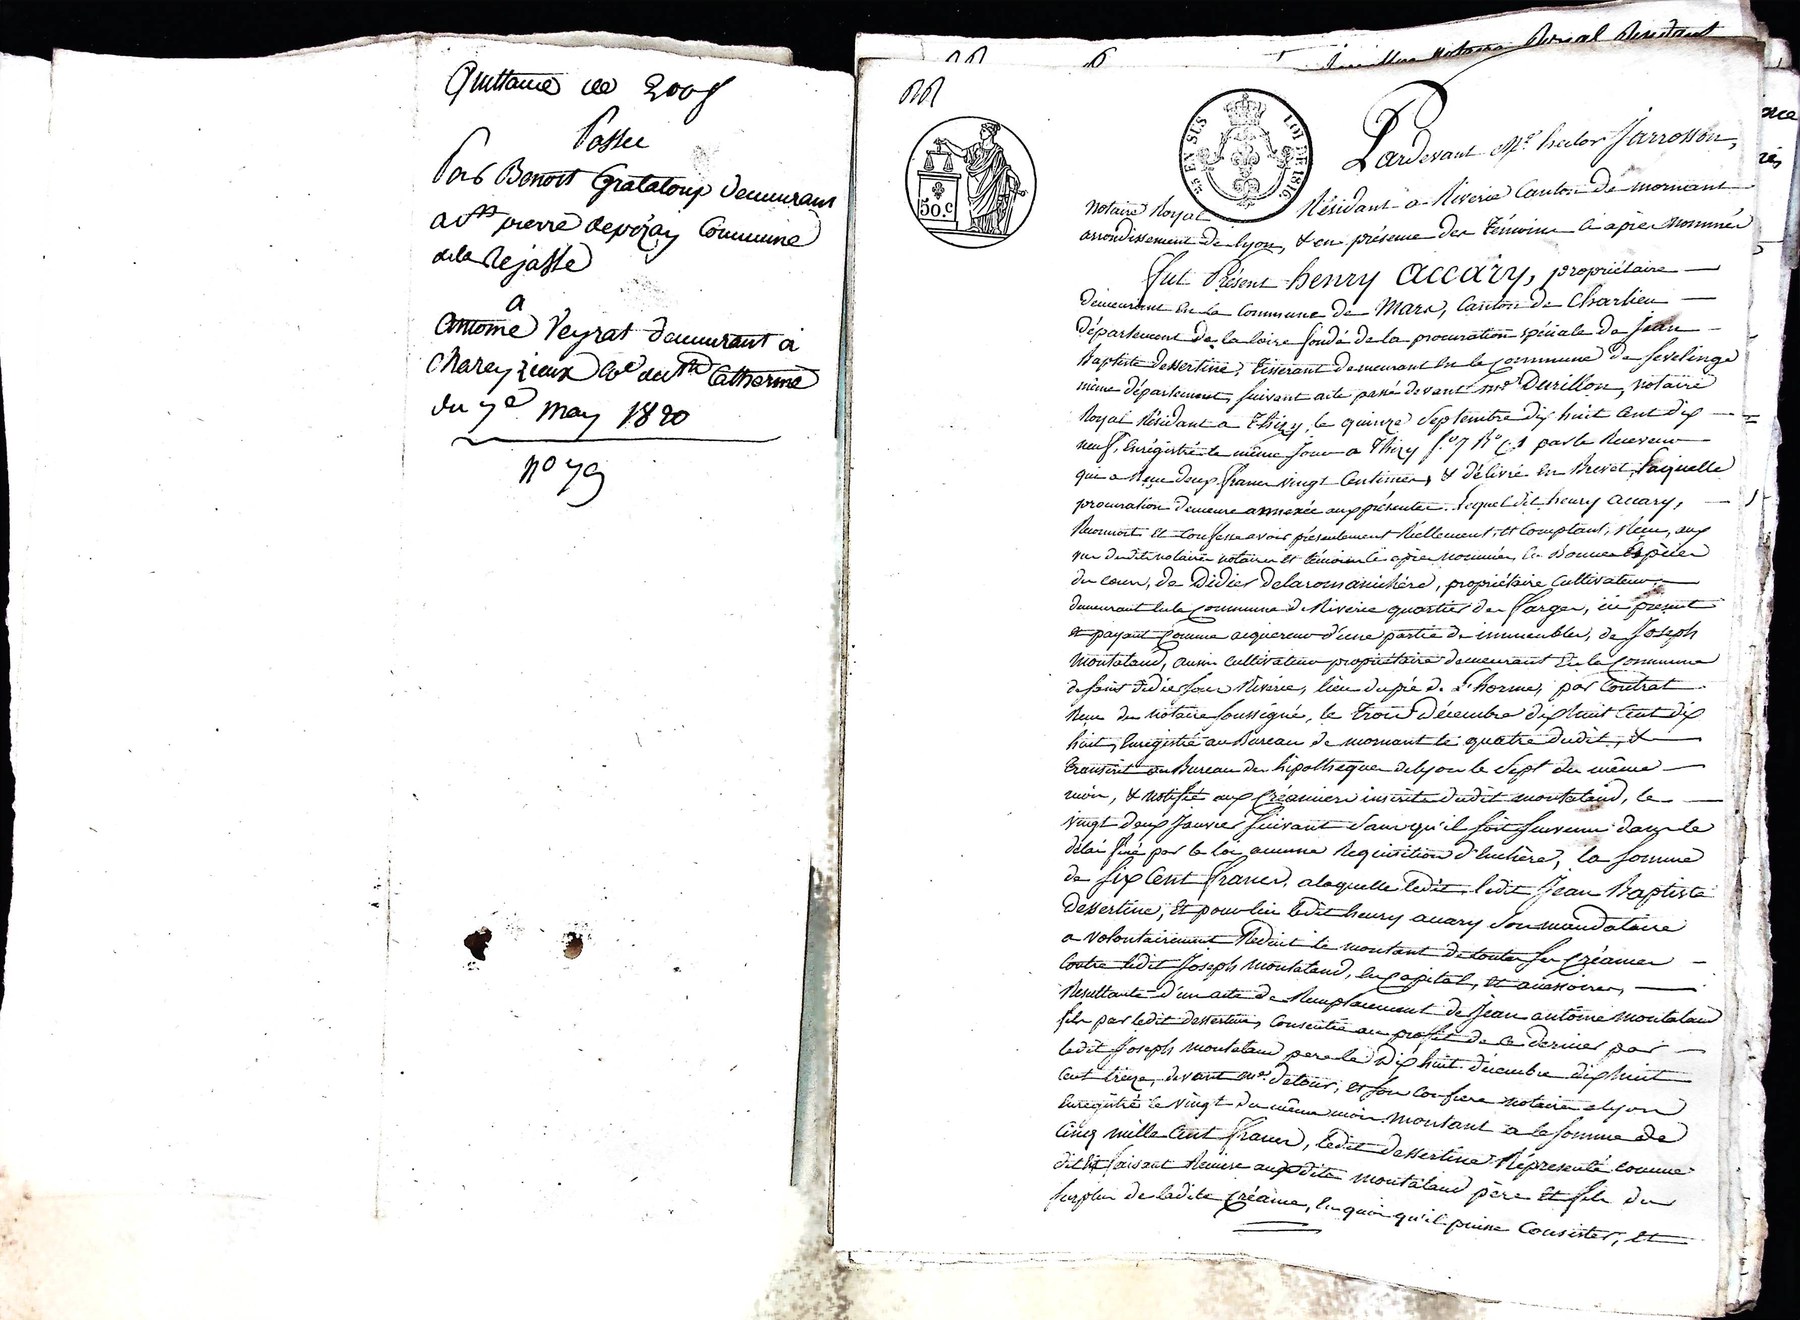 Quittance de 200f
Passée
Par Benoit Grataloup demeurant
a St pierre
commune
de la Rejasse
a
Antoine Veyrat demeurant à
Chareyzieux Cne de Ste Catherine
du 7e may 1820
n° 79
50.c
25 EN SUS
LOI DE 1816
Pardevant Me hector Jarrosson,
Notaire Royal Résidant a Riverie Canton de mornant
arrondissement de lyon, & en présence des témoins ci après nommés
fut Présent henry accary, propriétaire
demeurant en la Commune de Mars, Canton de Charlieu
département de la loire fondé de la procuration spéciale de Jean
Baptiste dessertine, tisserant demeurant en la Commune de sevelinge
même département, suivant acte passé devant me Durillon, notaire
Royal Résidant a thizy, le quinze septembre dix huit cent dix
neuf, Enrégistré le même Jour a thizy par le Receveur
qui a Reçu deux francs vingt Centimes, & délivré en Brevet, Laquelle
procuration demeure annexée aux présentes. Lequel dit henry accary,
Reconnoit et confesse avoir présentement Réellement et comptant, Reçu, aux
vu dudit notaire notaire et témoins ci après nommés, en Bonnes Espèces
du cours, de Didier delaromanichère, propriétaire Cultivateur
demeurant en la Commune de Riverie quartier des farges, ici présent
et payant Comme aiquereur d'une partie de immeubles, de Joseph
Montaland, aussi cultivateur propriétaire demeurant en la Commune
de saint didier sous Riverie, lieu du pré de L'horme, par contrat
Reçu du notaire soussigné, le trois décembre dix huit cent dix
huit, Enregistré au Bureau de mornant le quatre dudit, &
transcrit au Bureau des hipothèques de lyon le sept du même
mois, & notifié aux Créanciers inscrits dudit montaland, le
vingt deux Janvier suivant sans qu'il soit survenu dans le
délai fixé par la loi aucune Requisition d'Enchère, la somme
de six Cent francs, a laquelle ledit ledit Jean Baptiste
dessertine, Et pour lui ledit henry accary son mandataire
a volontairement Reduit le montant de toutes ses Créances
Contre ledit Joseph Montaland, en Capital, et accessoires,
Resultante d'un acte de Remplacement de Jean antoine montaland
fils par ledit dessertine, consentie au profit de ce dernier par
ledit Joseph montaland pere le dix huit décembre dix huit
cent treize, devant me detour, et son confrere notaires a lyon
Enregistré le vingt du même mois montant a la somme de
cinq mille Cent francs, ledit dessertine Réprésenté comme
dit est faisant Remise auxdits montaland père et fils du
surplus de ladite Créance, En quoi qu'il puisse Consister, et